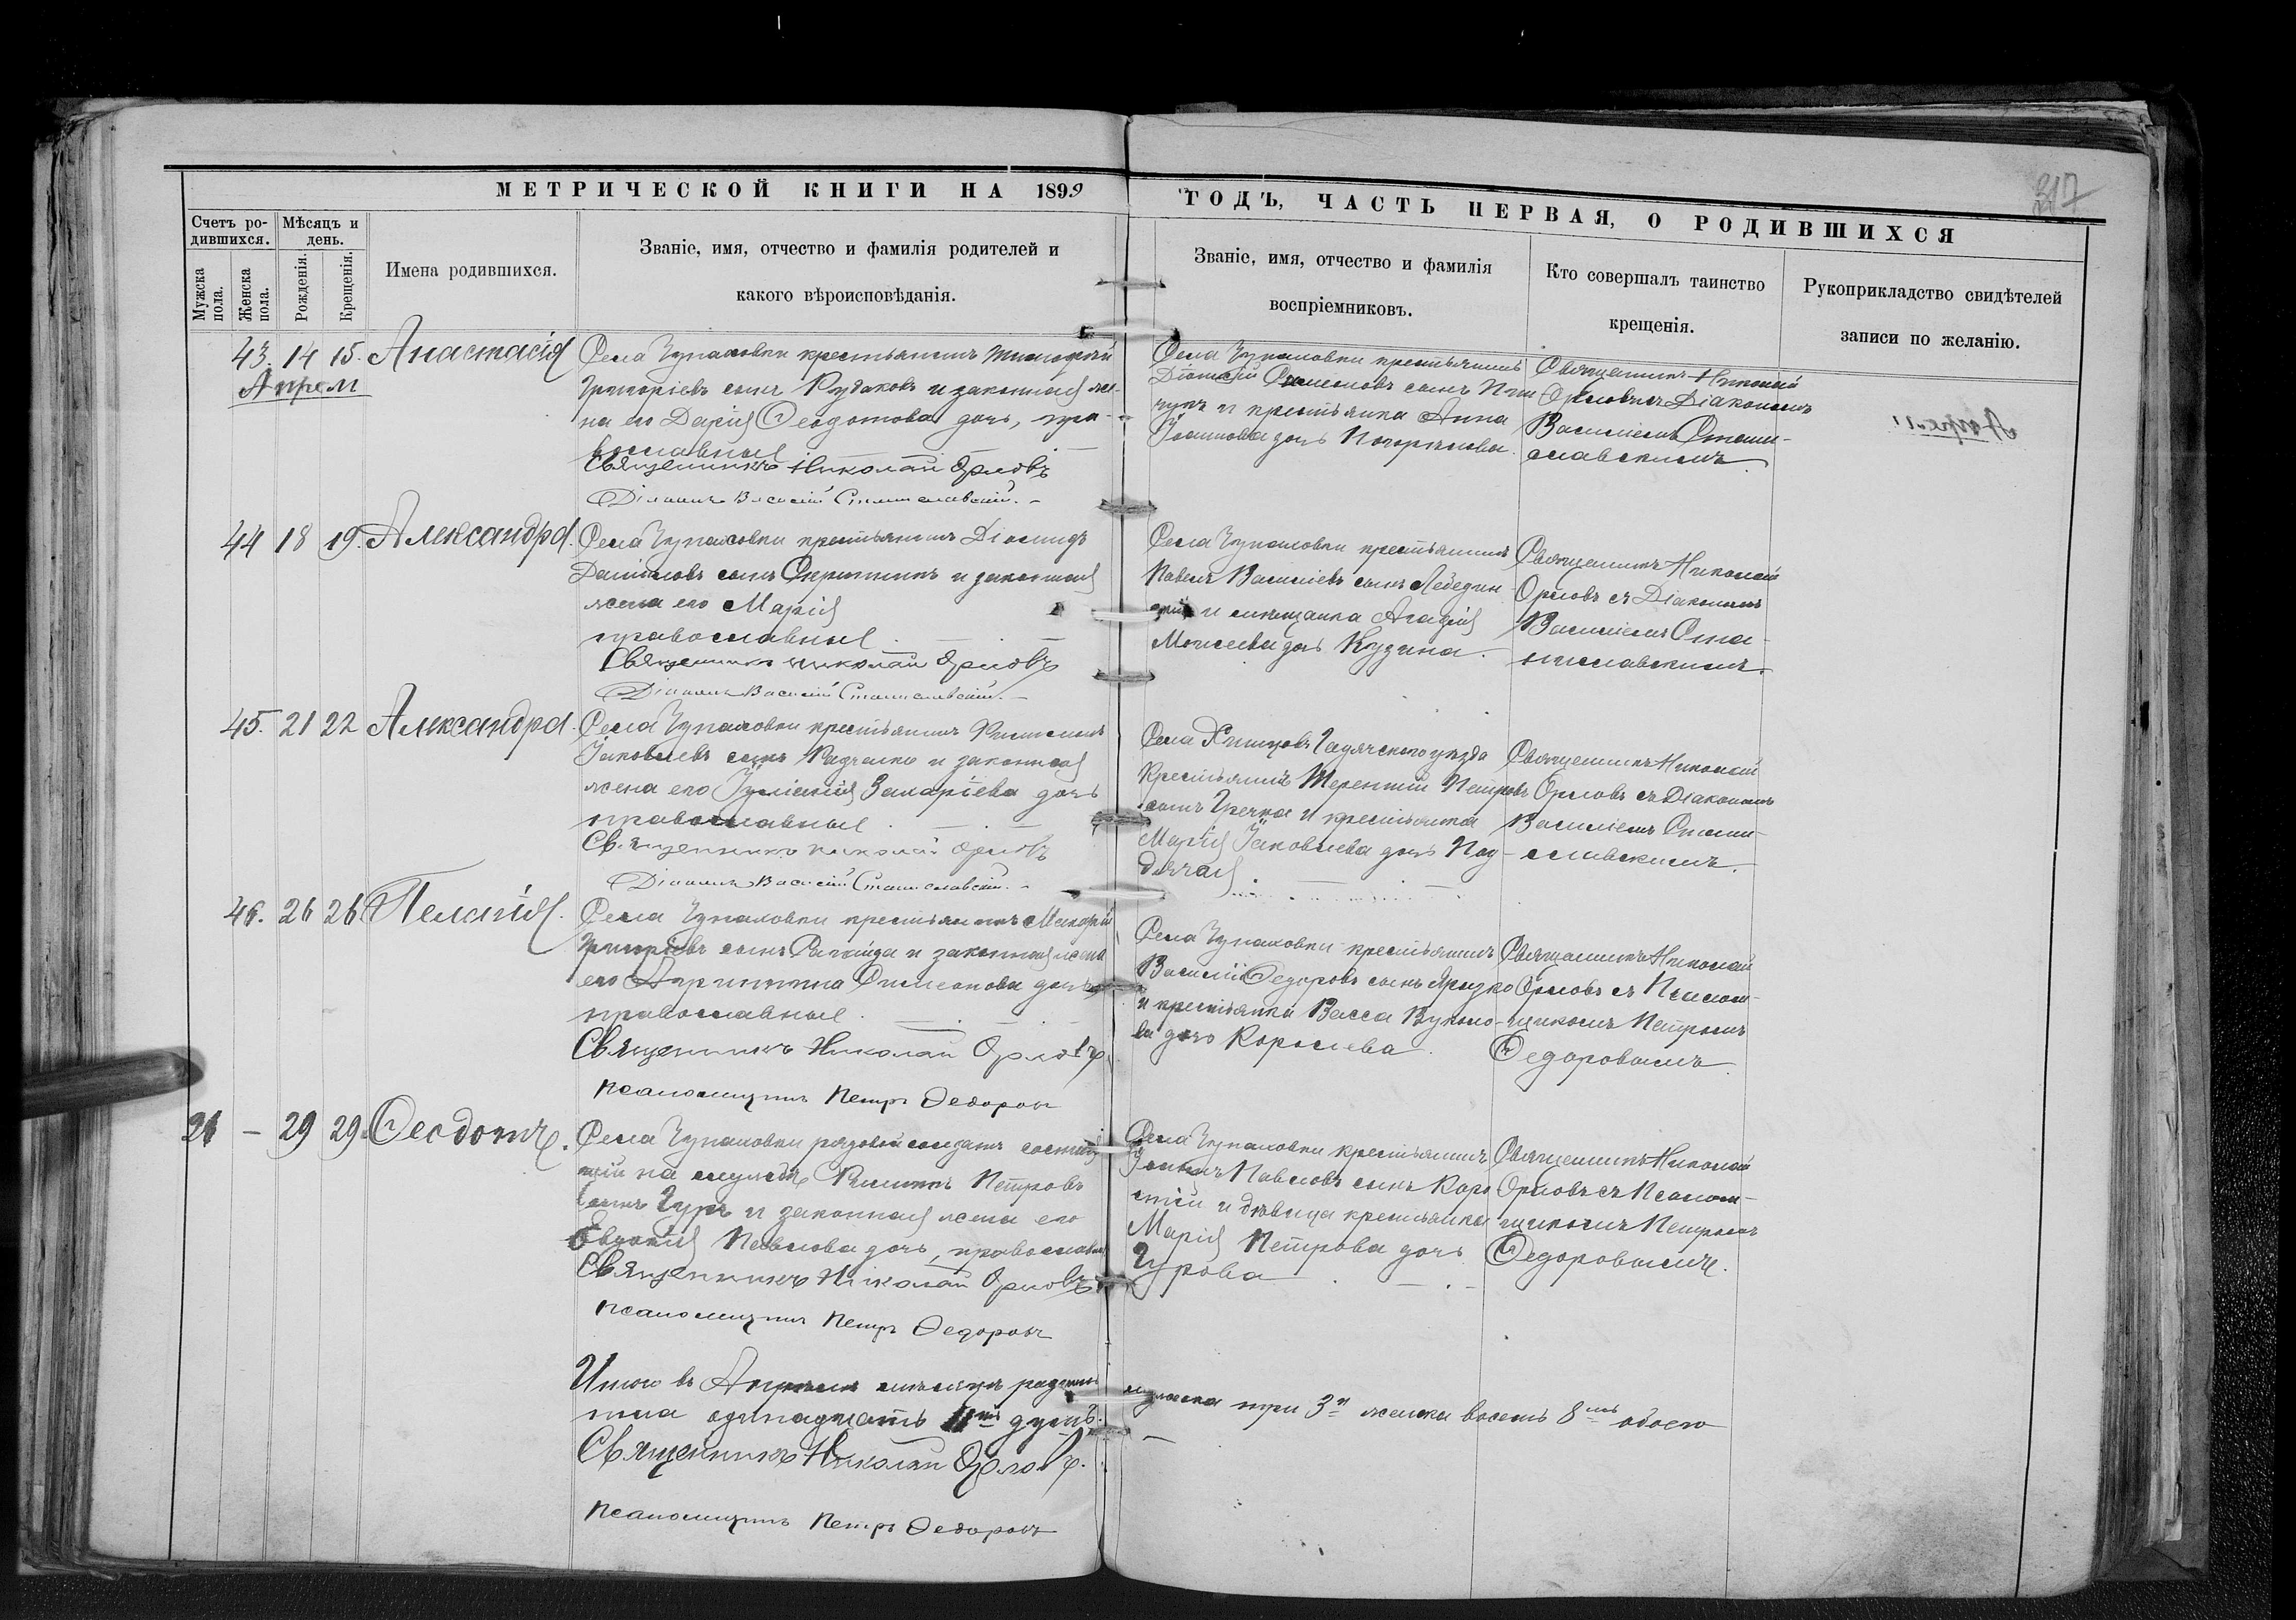 МЕТРИЧЕСКОЙ КНИГИ НА 1899
ГОДЪ, ЧАСТЬ ПЕРВАЯ, О РОДИВШИХСЯ
217
Счетъ ро-
дившихся.
Мужска
пола.
Женска
пола.
Мѣсяцъ и
день.
Рожденія.
Крещенія.
Имена родившихся.
Званіе, имя, отчество и фамилія родителей и
какого вѣроисповѣданія.
Званіе, имя, отчество и фамилія
воспріемниковъ.
Кто совершалъ таинство
крещенія.
Рукоприкладство свидѣтелей
записи по желанію.
43. 14 15. Анастасія
Апрель
Села Чупаховки крестьянинъ Тимофей
Григоріевъ сынъ Рудаковъ и законная же-
на его Дарія Ѳеодотова дочь, пра-
вославные
Священникъ Николай Орловъ
Діаконъ Василій Станиславскій.
Села Чупаховки крестьянинъ
Симеоновъ сынъ
и крестьянка Анна
дочь
Священникъ Николай
Орловъ съ Діакономъ
Василіемъ Стани-
славскимъ
44 18 19. Александра.
Села Чупаховки крестьянинъ Діомидъ
Даніиловъ сынъ Скрыпникъ и законная
жена его Марія
православные
Священникъ Николай Орловъ
Діаконъ Василій Станиславскій.
Села Чупаховки крестьянинъ
Павелъ Василіевъ сынъ Лебедин
скій и мѣщанка Агафія
Моисеева дочь Кузина.
Священникъ Николай
Орловъ съ Діакономъ
Василіемъ Ста-
ниславскимъ.
45. 21 22 Александра.
Села Чупаховки крестьянинъ Филимонъ
Іаковлевъ сынъ Радченко и законная
жена его Іуліанія Захаріева дочь
православные
Священникъ Николай Орловъ
Діаконъ Василій Станиславскій.
Села Гадячскаго уѣзда
Крестьянинъ Терентій Петровъ
сынъ Гречка и крестьянка
Марія Іаковлева дочь Под-
дячая
Священникъ Николай
Орловъ съ Діакономъ
Василіемъ Стани-
славскимъ.
46. 26 26. Пелагія.
Села Чупаховки крестьянинъ Макарій
Григоріевъ сынъ и законная жена
его Симеонова дочь
православные.
Священникъ Николай Орловъ
Псаломщикъ Петръ Ѳедоровъ
Села Чупаховки крестьянинъ
Василій Ѳедоровъ сынъ
и крестьянка Васса Вуколо-
ва дочь Королева.
Священникъ Николай
Орловъ съ Псалом-
щикомъ Петромъ
Ѳедоровымъ
21 — 29 29. Ѳеодотъ.
Села Чупаховки рядовой солдатъ состоя
щій на службѣ Филиппъ Петровъ
сынъ Гуръ и законная жена его
Евдокія Павлова дочь, православные
Священникъ Николай Орловъ
Псаломщикъ Петръ Ѳедоровъ
Села Чупаховки крестьянинъ
Павловъ сынъ Коро
стій и дѣвица крестьянка
Марія Петрова дочь
Гурова
Священникъ Николай
Орловъ съ Псалом-
щикомъ Петромъ
Ѳедоровымъ.
Итого въ Апрѣлѣ мѣсяцѣ родилось мужска три 3и женска восемь 8мь обоего
пола одинадцать 11ть душъ.
Священникъ Николай Орловъ.
Псаломщикъ Петръ Ѳедоровъ